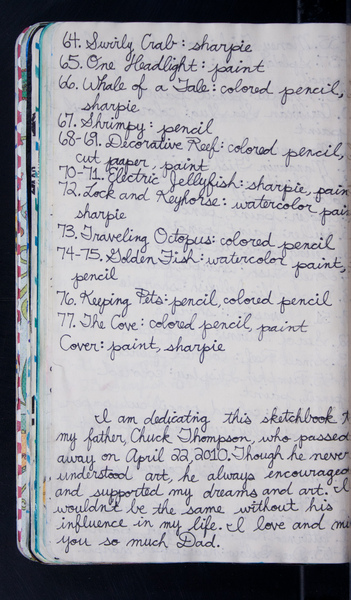 64. Swirly Crab: sharpie
65. One Headlight: paint
66. Whale of a Tale: colored pencil,
sharpie
67. Shrimpy: pencil
68-69. Decorative Reef: colored pencil,
cut paper, paint
70-71. Electric Jellyfish: sharpie, pain
72. Lock and Keyhorse: watercolor pai
sharpie
73. Traveling Octopus: colored pencil
74-75. Golden Fish: watercolor paint,
pencil
76. Keeping Pets: pencil, colored pencil
77. The Cove: colored pencil, paint
Cover: paint, sharpie
I am dedicating this sketchbook t
my father, Chuck Thompson, who passed
away on April 22, 2010. Though he never
understood art, he always encouraged
and supported my dreams and art. I
wouldn't be the same without his
influence in my life. I love and mi
you so much Dad.